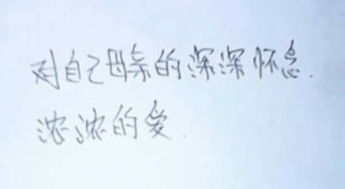 对自己母亲的深深怀念.
浓浓的爱.